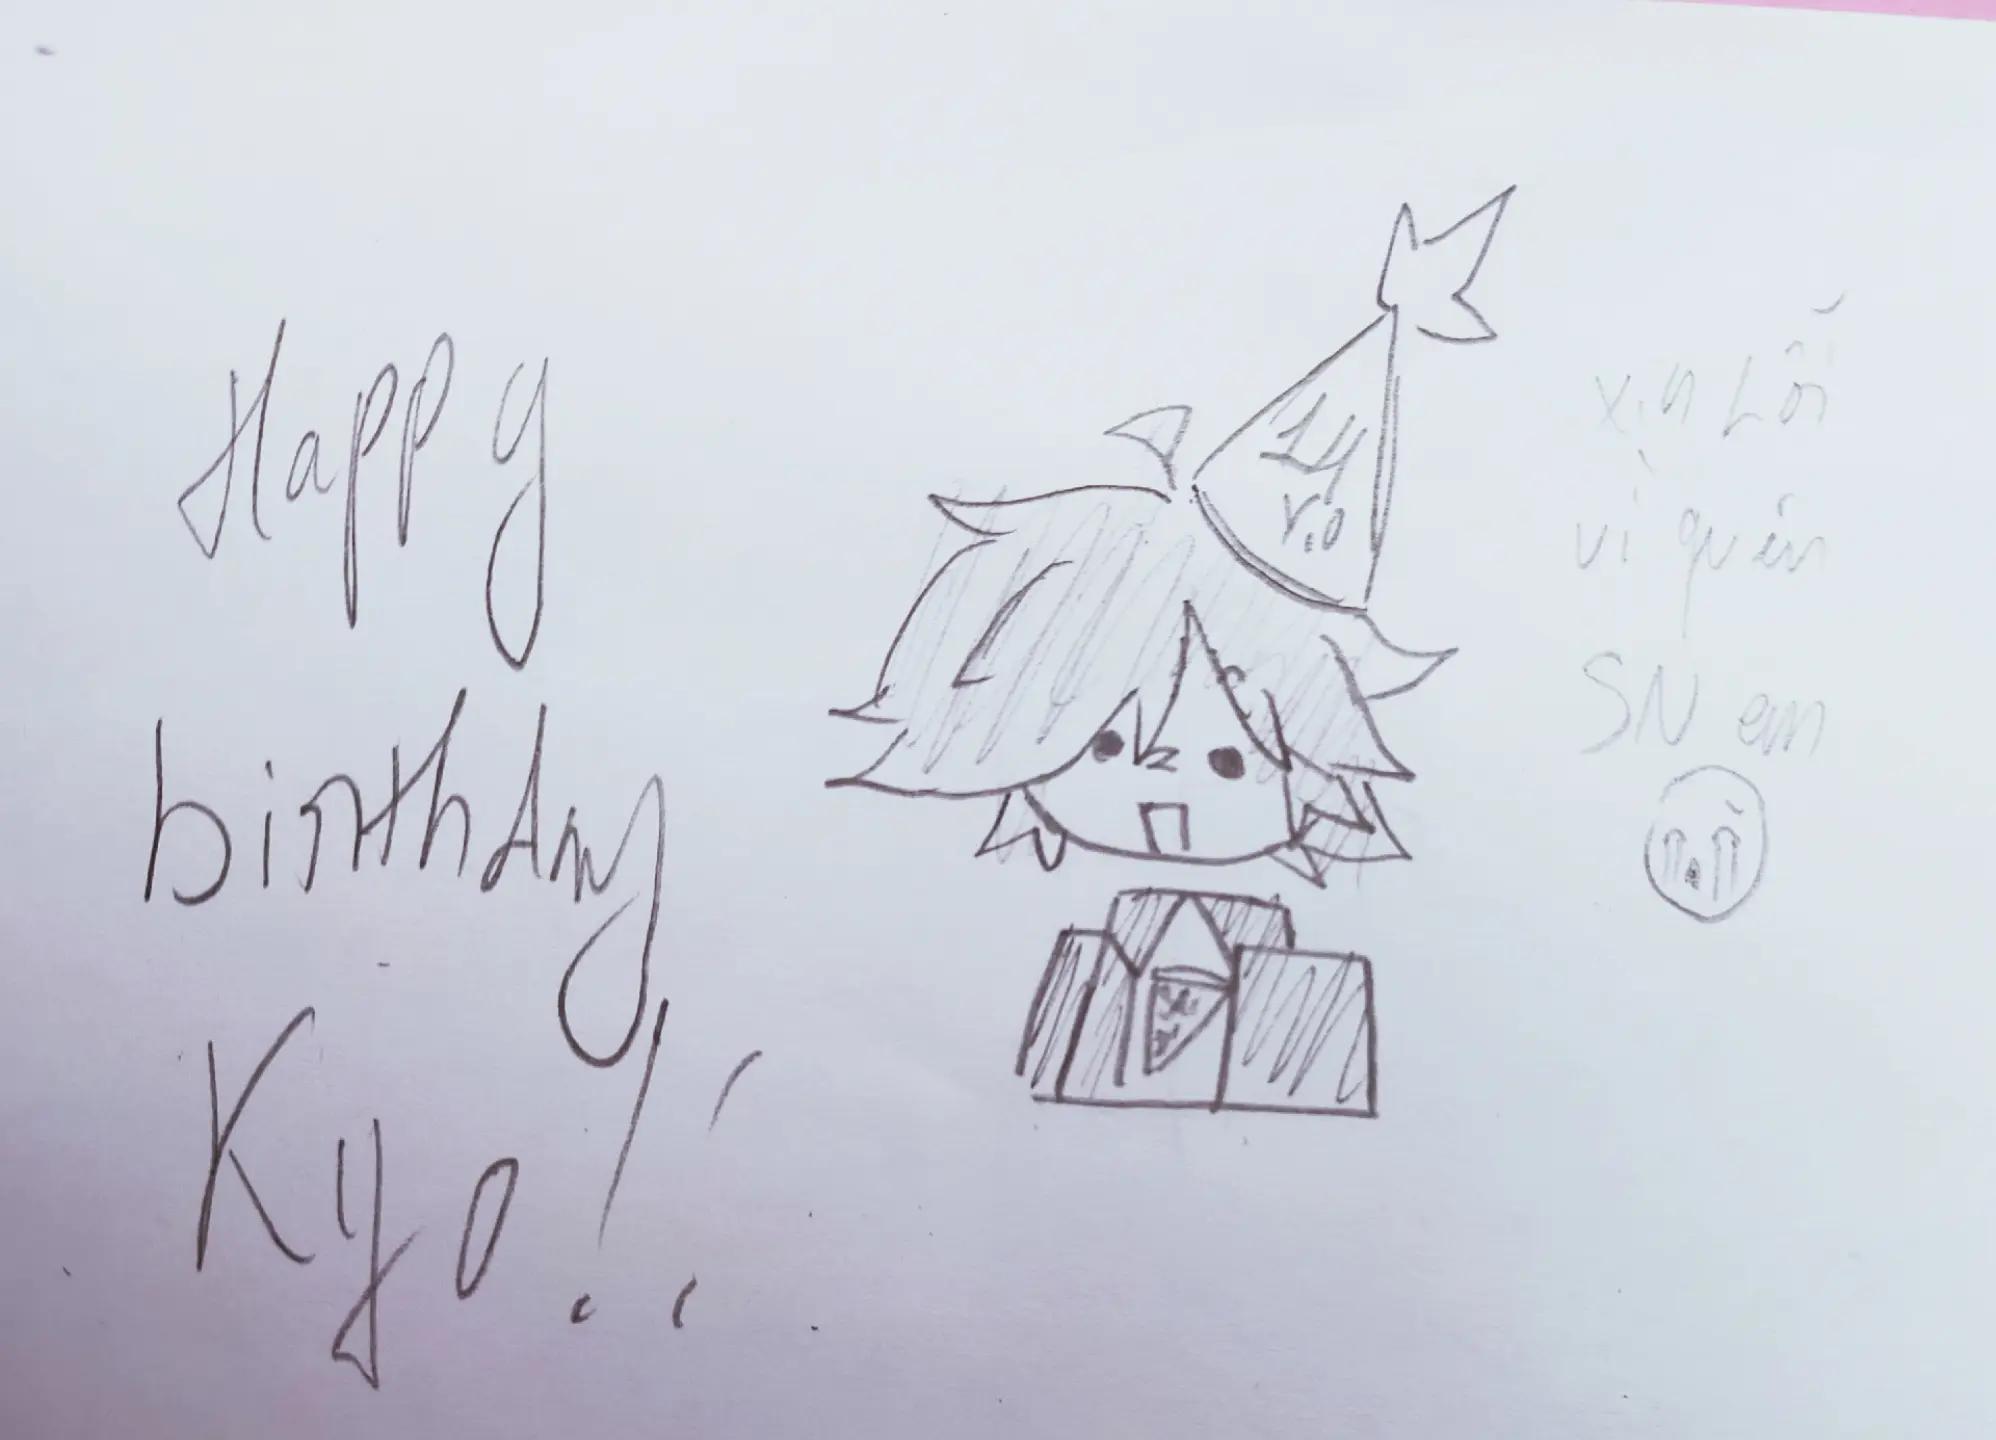 Happy
birthday
Kyo!
14
Y.o
xin Lỗi
vì quên
SN em